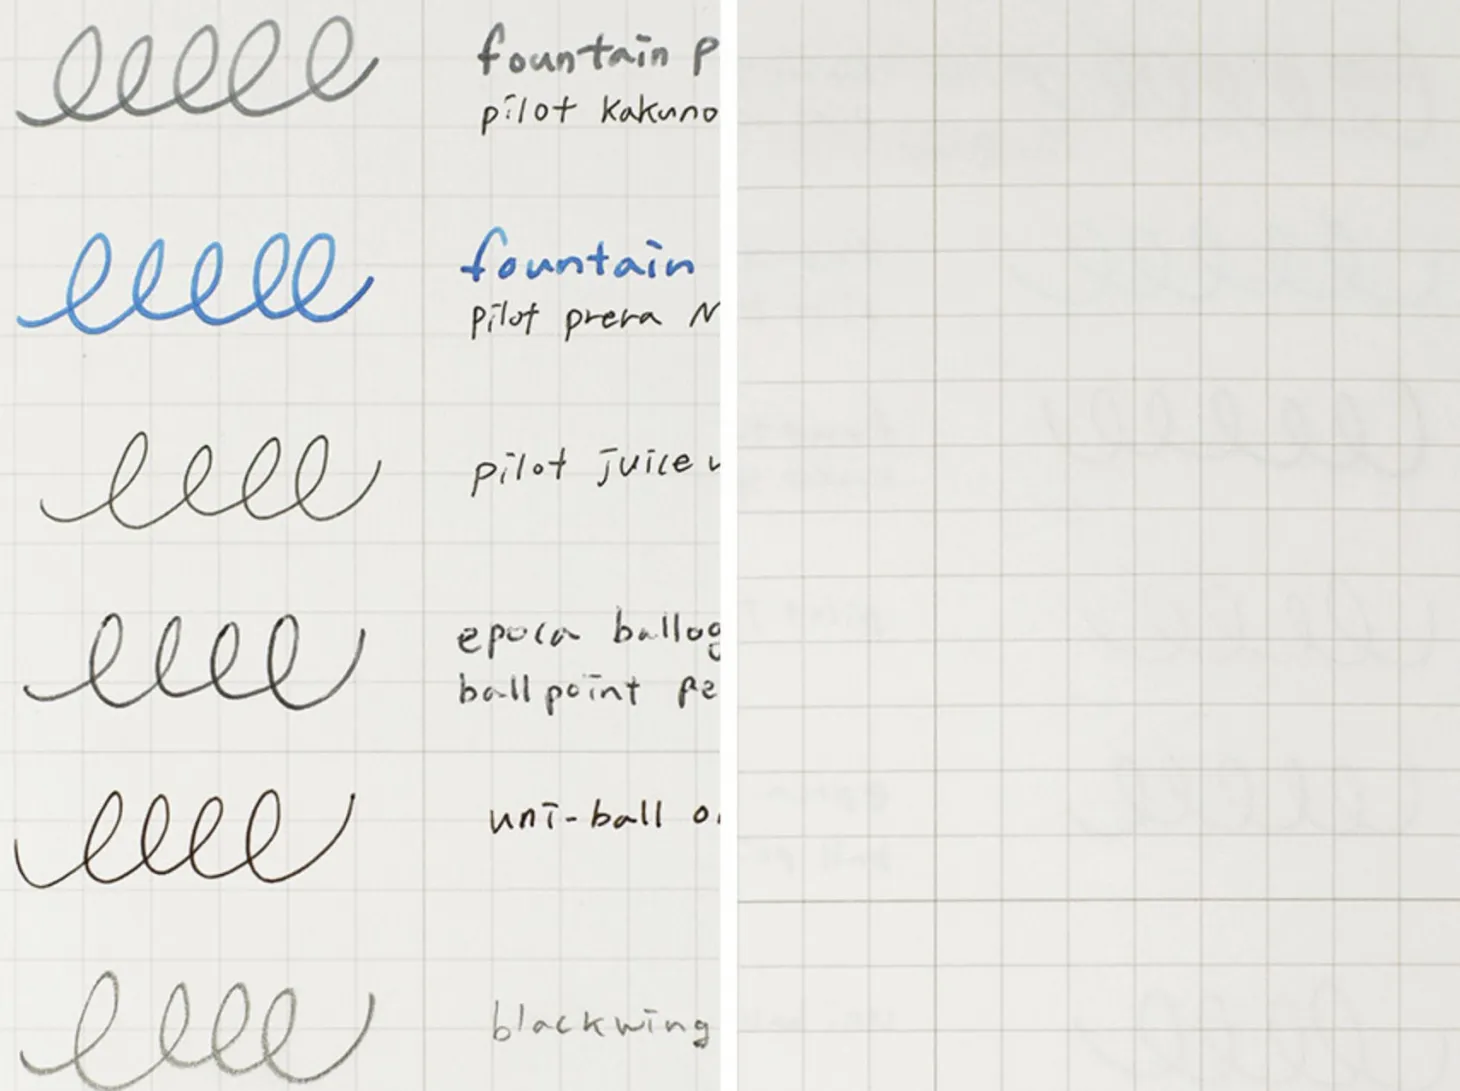 fountain p
pilot kakuno
fountain
pilot prera N
pilot juice
epoca ballog
ball point pe
uni-ball o
blackwing